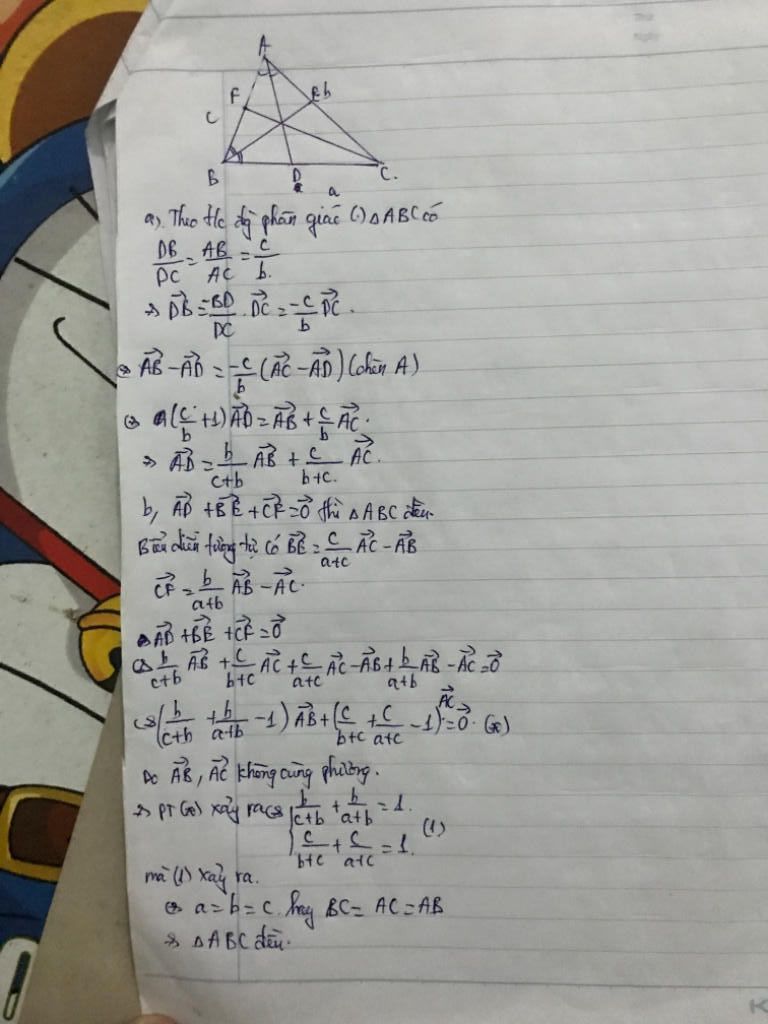 A
F
E b
c
B
D
C.
a
a). Theo t/c đg phân giác (·) △ABC có
DB/DC = AB/AC = c/b.
→ \vec{DB} = -BD/DC . \vec{DC} = -c/b \vec{DC}.
⇔ \vec{AB} - \vec{AD} = -c/b (\vec{AC} - \vec{AD}) (chèn A)
⇔ (c/b + 1) \vec{AD} = \vec{AB} + c/b \vec{AC}.
→ \vec{AD} = b/(c+b) \vec{AB} + c/(b+c) \vec{AC}.
b, \vec{AD} + \vec{BE} + \vec{CF} = \vec{0} thì △ABC đều.
Biểu diễn tương tự có \vec{BE} = c/(a+c) \vec{AC} - \vec{AB}
\vec{CF} = b/(a+b) \vec{AB} - \vec{AC}.
→ \vec{AD} + \vec{BE} + \vec{CF} = \vec{0}
⇔ b/(c+b) \vec{AB} + c/(b+c) \vec{AC} + c/(a+c) \vec{AC} - \vec{AB} + b/(a+b) \vec{AB} - \vec{AC} = \vec{0}
⇔ (b/(c+b) + b/(a+b) - 1) \vec{AB} + (c/(b+c) + c/(a+c) - 1) \vec{AC} = \vec{0}. (*)
Do \vec{AB}, \vec{AC} không cùng phương.
→ PT (*) xảy ra ⇔ { b/(c+b) + b/(a+b) = 1.
c/(b+c) + c/(a+c) = 1. (1)
mà (1) xảy ra.
⇔ a = b = c. hay BC = AC = AB
→ △ABC đều.